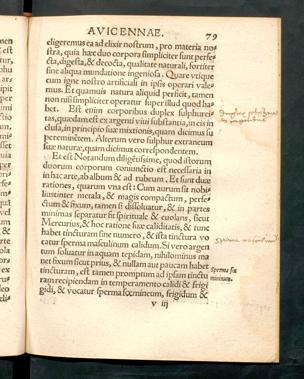 AVICENNAE. 79
eligeremus ea ad elixir nostrum, pro materia no-
stra, quia hæc duo corpora simpliciter sunt perfe-
cta, digesta, & decocta, qualitate naturali, fortiter
sine aliqua mundatione ingeniosa. Quare vtique
cum igne nostro artificiali in ipsis operari vale-
mus. Et quamuis natura aliquid perficit, tamen
non nisi simpliciter operatur super illud quod ha-
bet. Est enim corporibus duplex sulphurei-
tas, quædam est ex argenti viui substantia, in eis in
clusa, in principio suæ mixtionis, quam dicimus su
pereminentem. Alterum vero sulphur extraneum
suæ naturæ, quam dicimus correspondentem.
Et est Notandum diligētissime, quod istorum
duorum corporum coniunctio est necessaria in
in hac arte, ad album & ad rubeum. Et sunt duæ
rationes, quarum vna est: Cum aurum sit nobi
lius inter metala, & magis compactum, perfe-
ctum & fixum, tamen si dissoluatur, & in partes
minimas separatur fit spirituale & euolans, sicut
Mercurius, & hoc ratione suæ caliditatis, & tunc
habet tincturam sine numero, & ista tinctura vo
catur sperma masculinum calidum. Si vero argen
tum soluatur in aquam tepidam, nihilominus ma
net fixum sicut prius, & nullam aut paucam habet
tincturam, est tamen promptum ad ipsam tinctu
ram recipiendam in temperamento calidi & frigi
gidi, & vocatur sperma fœmineum, frigidum &
Sperma fœ
mineum.
v iij